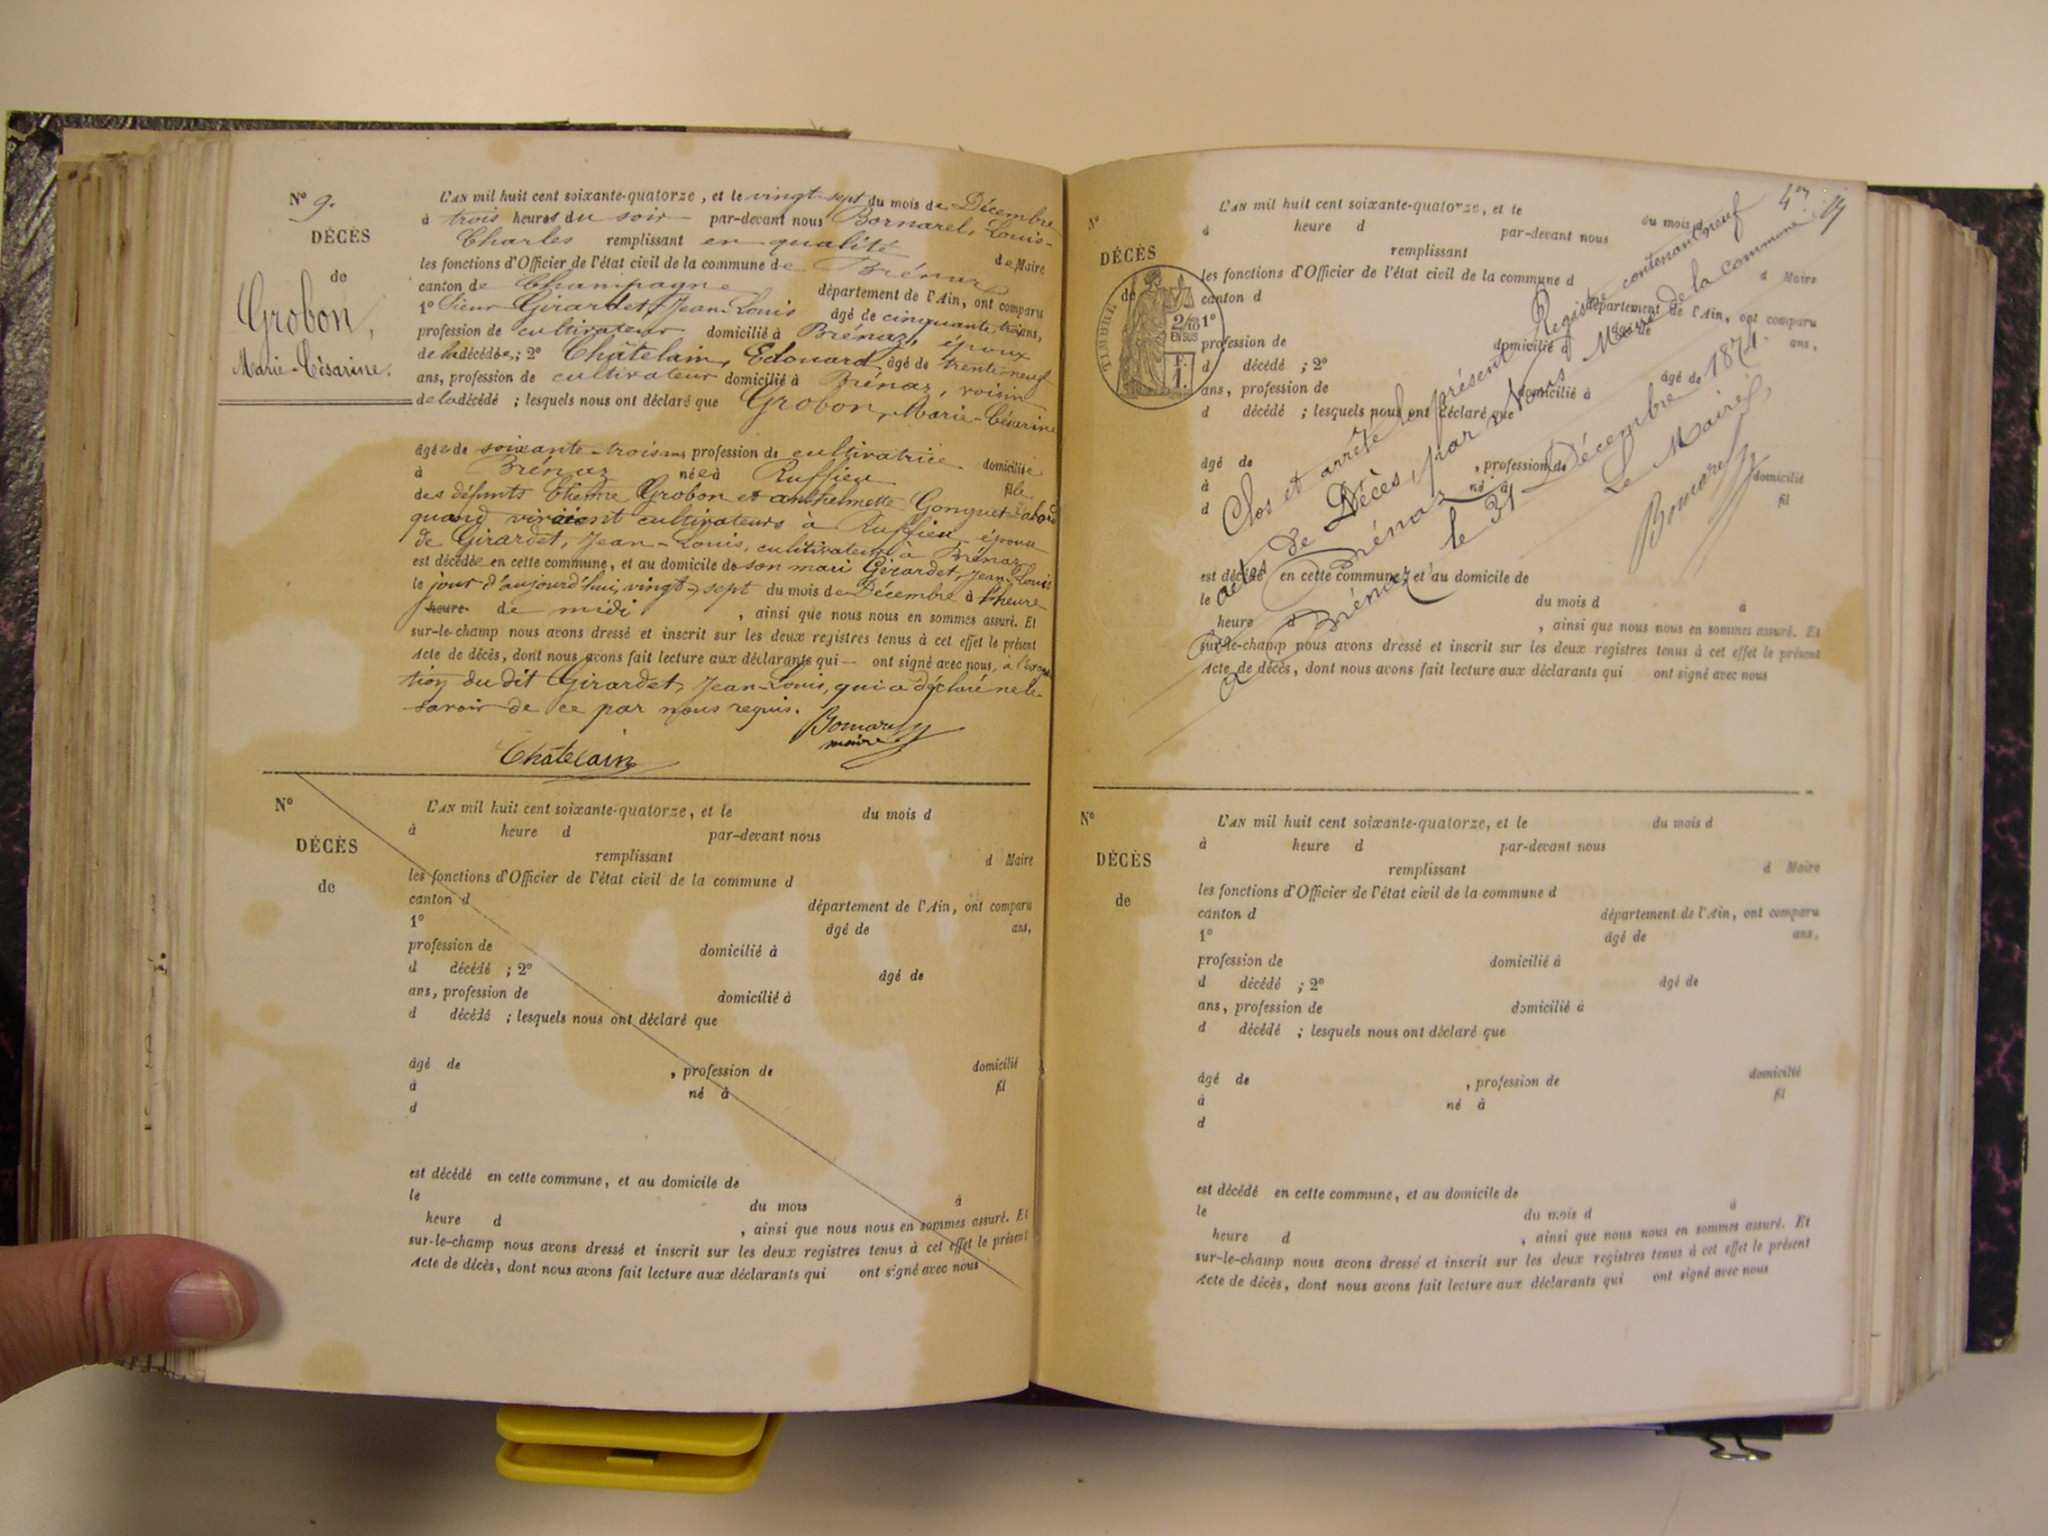 N° 9.
DÉCÈS
de
Grobon,
Marie-Césarine.
L'AN mil huit cent soixante-quatorze, et le vingt-sept du mois de Décembre
à trois heures du soir par-devant nous Bornarel, Louis-
Charles remplissant en qualité de Maire
les fonctions d'Officier de l'état civil de la commune de Brénaz
canton de Champagne département de l'Ain, ont comparu
1° Sieur Girardet, Jean-Louis âgé de cinquante-trois ans,
profession de cultivateur domicilié à Brénaz, époux
de la décédée, ; 2° Châtelain, Edouard, âgé de trente-neuf
ans, profession de cultivateur domicilié à Brénaz, voisin
de la décédé ; lesquels nous ont déclaré que Grobon, Marie-Césarine
âgée de soixante-trois ans, profession de cultivatrice domiciliée
à Brénaz née à Ruffieu fille
des défunts Etienne Grobon et anthelmette Gonguet
quand vivaient cultivateurs à Ruffieu, épouse
de Girardet, Jean-Louis, cultitivateur à Brénaz
est décédée en cette commune, et au domicile de son mari Girardet, Jean-Louis
le jour d'aujourd'hui, vingt-sept du mois de Décembre à l'heure
heure de midi , ainsi que nous nous en sommes assuré. Et
sur-le-champ nous avons dressé et inscrit sur les deux registres tenus à cet effet le présent
Acte de décès, dont nous avons fait lecture aux déclarants qui — ont signé avec nous, à l'excep
tion du dit Girardet, Jean-Louis, qui a déclaré ne le
savoir de ce par nous requis.
Bornarel
maire
Châtelain
N°
DÉCÈS
de
L'AN mil huit cent soixante-quatorze, et le du mois d
à heure d par-devant nous
remplissant d Maire
les fonctions d'Officier de l'état civil de la commune d
canton d département de l'Ain, ont comparu
1° âgé de ans,
profession de domicilié à
d décédé ; 2° âgé de
ans, profession de domicilié à
d décédé ; lesquels nous ont déclaré que
âgé de , profession de domicilié
à né à fil
d
est décédé en cette commune, et au domicile de
le du mois à
heure d , ainsi que nous nous en sommes assuré. Et
sur-le-champ nous avons dressé et inscrit sur les deux registres tenus à cet effet le présent
Acte de décès, dont nous avons fait lecture aux déclarants qui ont signé avec nous
N°
DÉCÈS
de
TIMBRE
2/10
EN SUS
F.
1.
L'AN mil huit cent soixante-quatorze, et le du mois d
à heure d par-devant nous
remplissant d Maire
les fonctions d'Officier de l'état civil de la commune d
canton d département de l'Ain, ont comparu
1° âgé de ans,
profession de domicilié à
d décédé ; 2° âgé de
ans, profession de domicilié à
d décédé ; lesquels nous ont déclaré que
âgé de , profession de domicilié
à né à fil
d
est décédé en cette commune, et au domicile de
le du mois d à
heure d , ainsi que nous nous en sommes assuré. Et
sur-le-champ nous avons dressé et inscrit sur les deux registres tenus à cet effet le présent
Acte de décès, dont nous avons fait lecture aux déclarants qui ont signé avec nous
Clos et arrêté le présent Registre contenant neuf
actes de Décès, par Nous Maire de la commune
de Brénaz
à Brénaz, le 31 Décembre 1874.
Le Maire,
Bornarel
N°
DÉCÈS
de
L'AN mil huit cent soixante-quatorze, et le du mois d
à heure d par-devant nous
remplissant d Maire
les fonctions d'Officier de l'état civil de la commune d
canton d département de l'Ain, ont comparu
1° âgé de ans,
profession de domicilié à
d décédé ; 2° âgé de
ans, profession de domicilié à
d décédé ; lesquels nous ont déclaré que
âgé de , profession de domicilié
à né à fil
d
est décédé en cette commune, et au domicile de
le du mois d à
heure d , ainsi que nous nous en sommes assuré. Et
sur-le-champ nous avons dressé et inscrit sur les deux registres tenus à cet effet le présent
Acte de décès, dont nous avons fait lecture aux déclarants qui ont signé avec nous